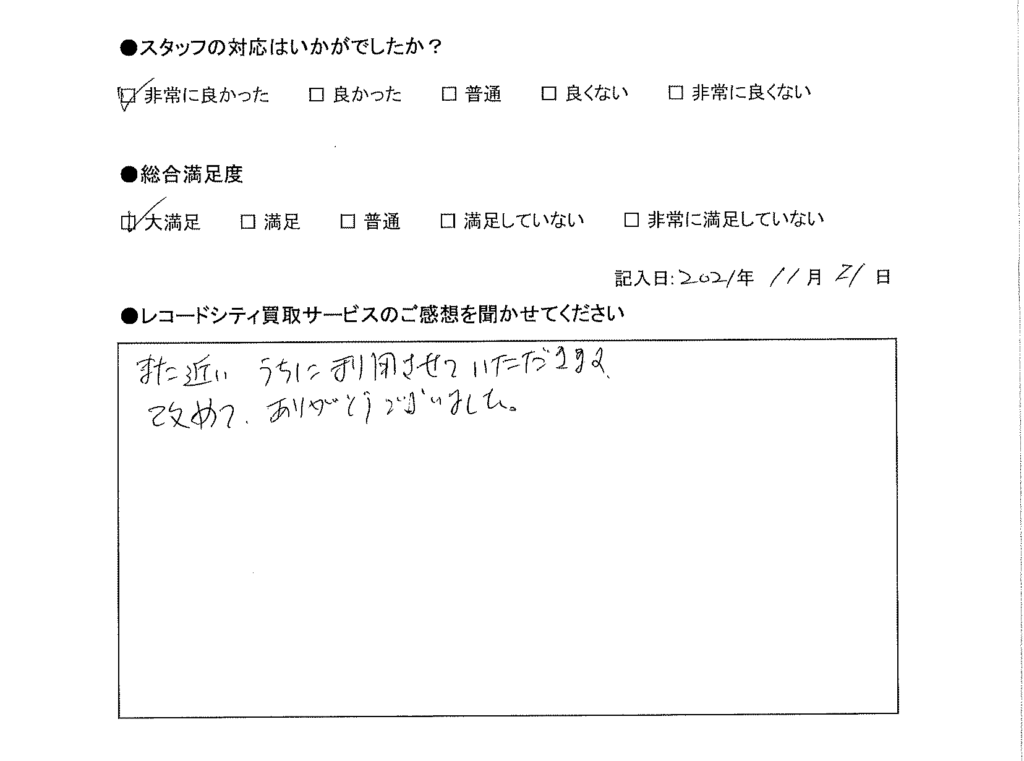 ●スタッフの対応はいかがでしたか？
☑非常に良かった □良かった □普通 □良くない □非常に良くない
●総合満足度
☑大満足 □満足 □普通 □満足していない □非常に満足していない
記入日:2021年 11月 21日
●レコードシティ買取サービスのご感想を聞かせてください
また近いうちに利用させていただきます。
改めて、ありがとうございました。